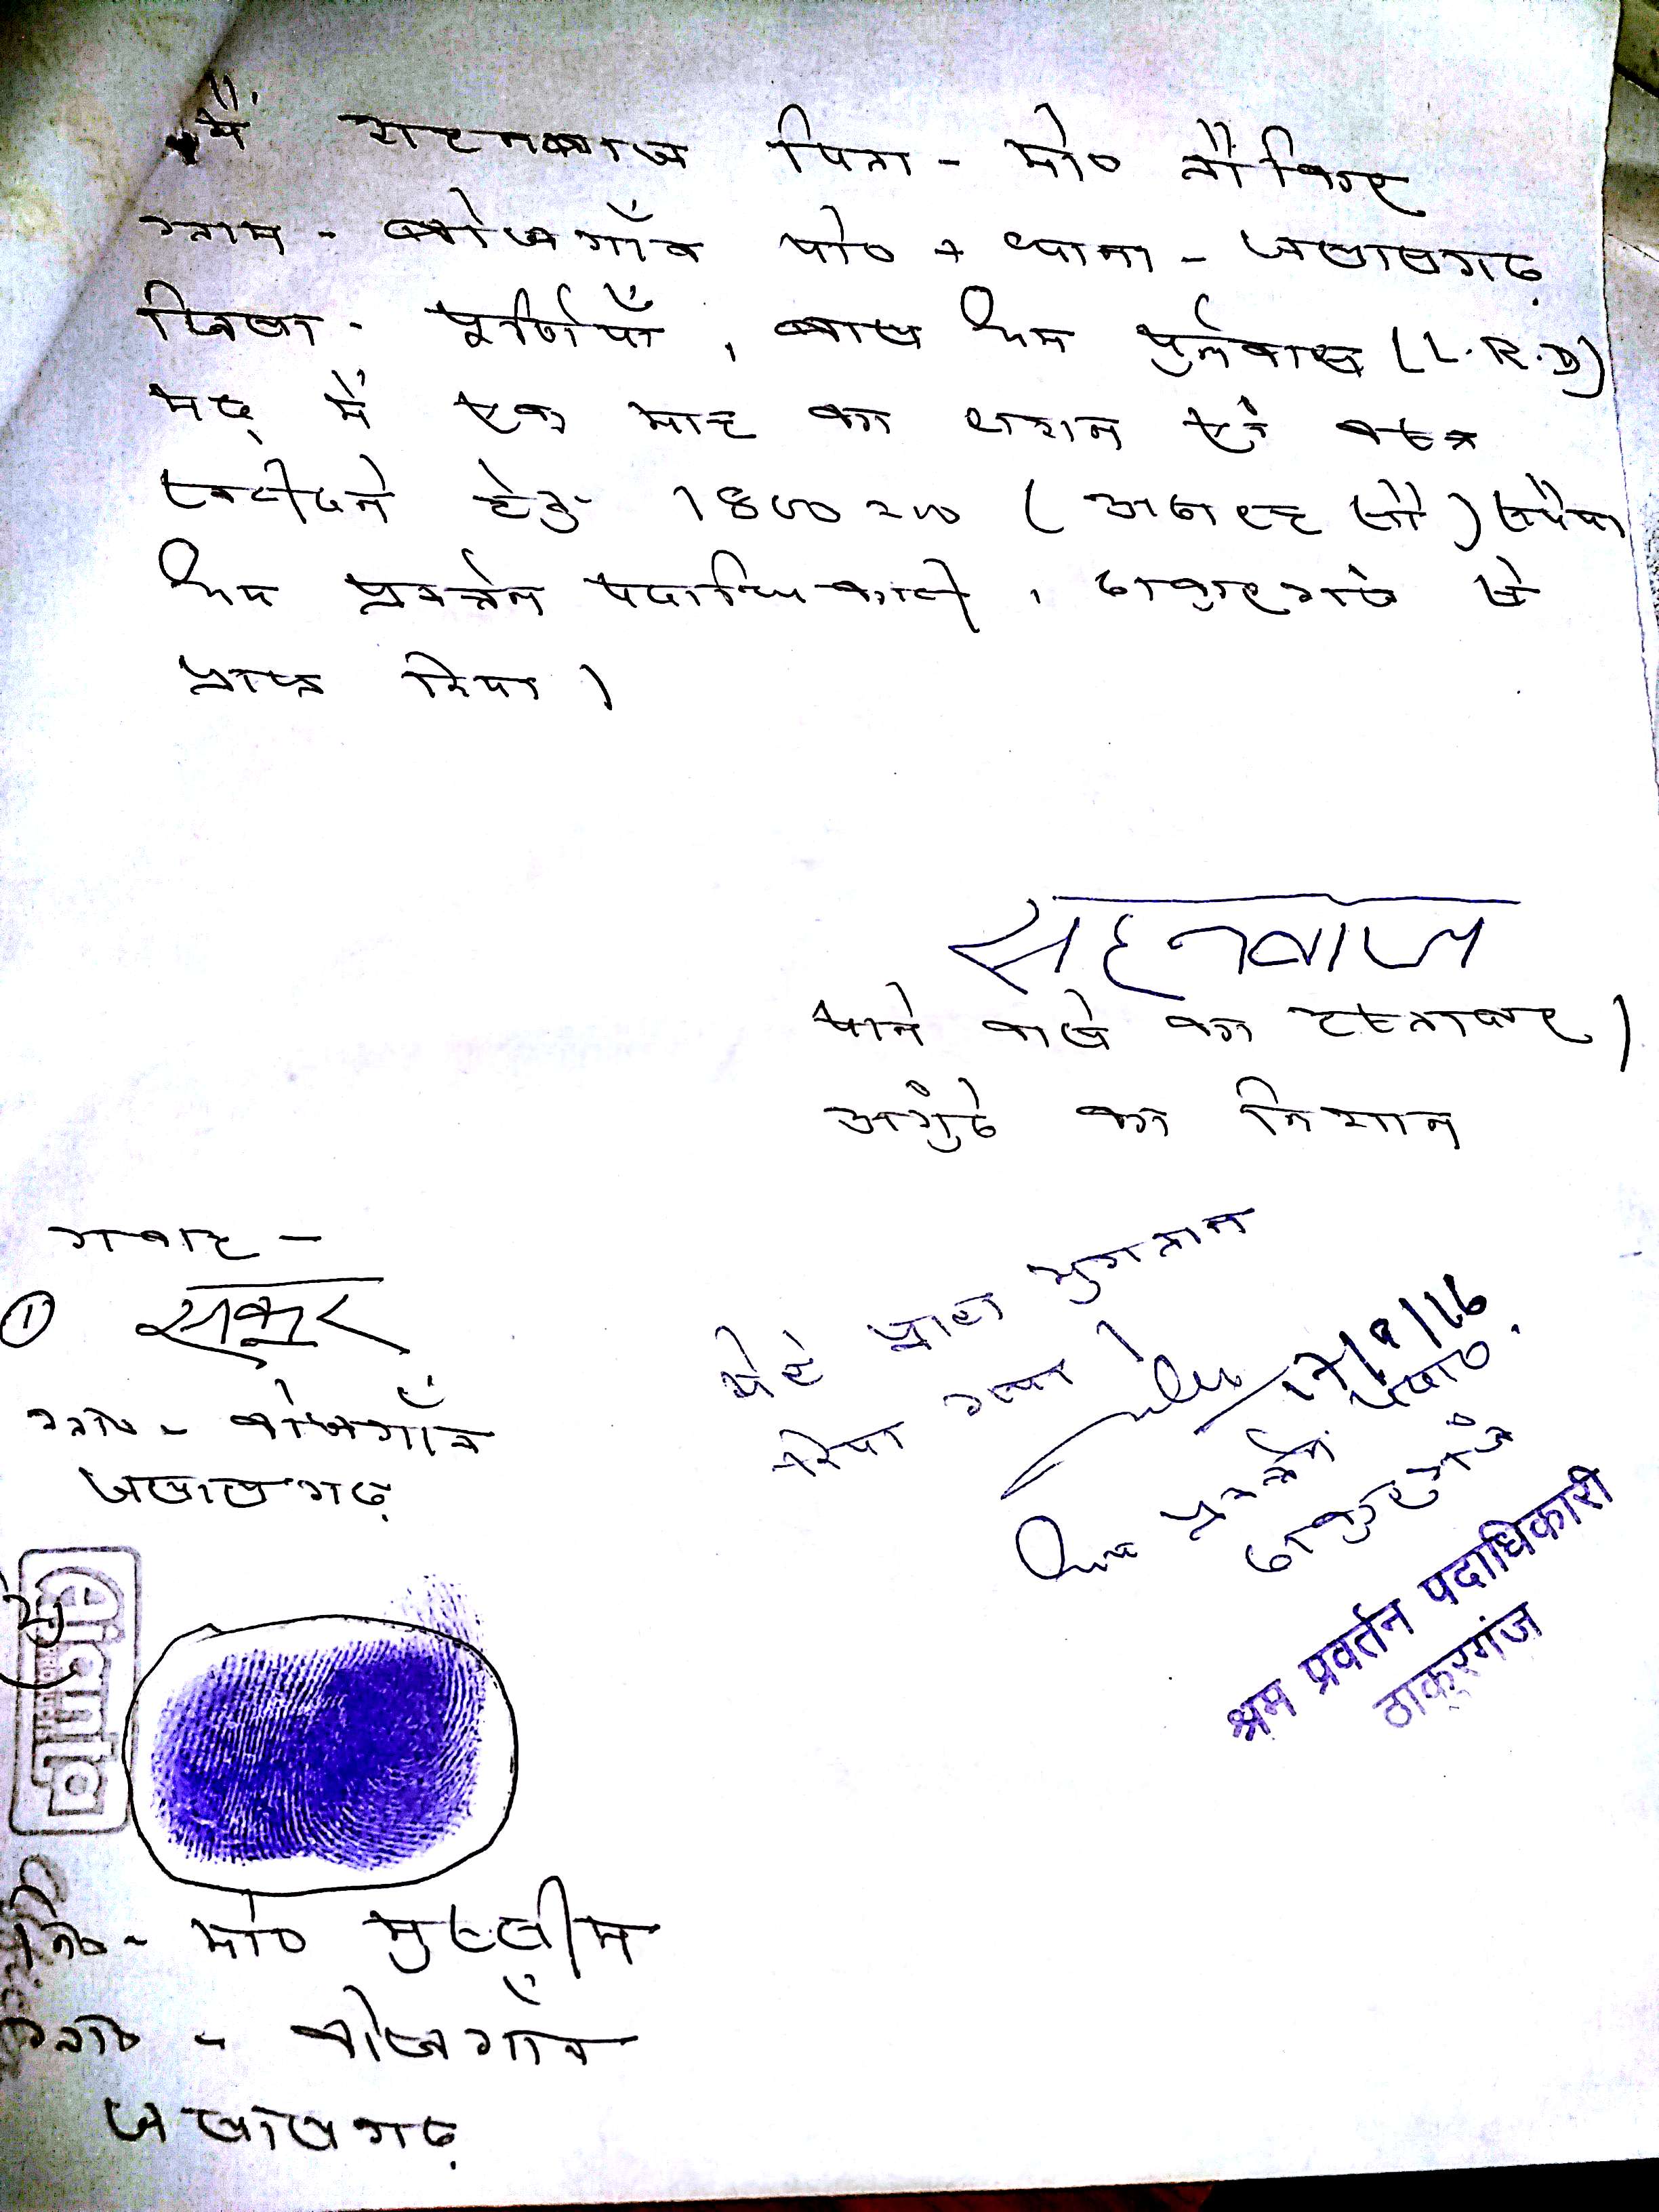 मैं शहनबाज पिता - मो० तौकिर
ग्राम - बोजगाँव पो० + थाना - जलालगढ़
जिला - पूर्णियाँ, बाल श्रम पुर्नवास (L.R.D)
मद् में एक माह का राशन एवं वस्त्र
खरीदने हेतु 1800 रू० (अठारह सौ) रूपैया
श्रम प्रवर्त्तन पदाधिकारी, ठाकुरगंज से
प्राप्त किया।
सहनवाज
पाने वाले का हस्ताक्षर /
अगुंठे का निशान
गवाह -
① सकुर
ग्रा० - बोजगाँव
जलालगढ़
मेरे द्वारा भुगतान
किया गया।
श्रम प्रवर्त्तन पदा०
ठाकुरगंज
श्रम प्रवर्तन पदाधिकारी
ठाकुरगंज
नि० - मो० मुस्लीम
ग्रा० - बोजगाँव
जलालगढ़